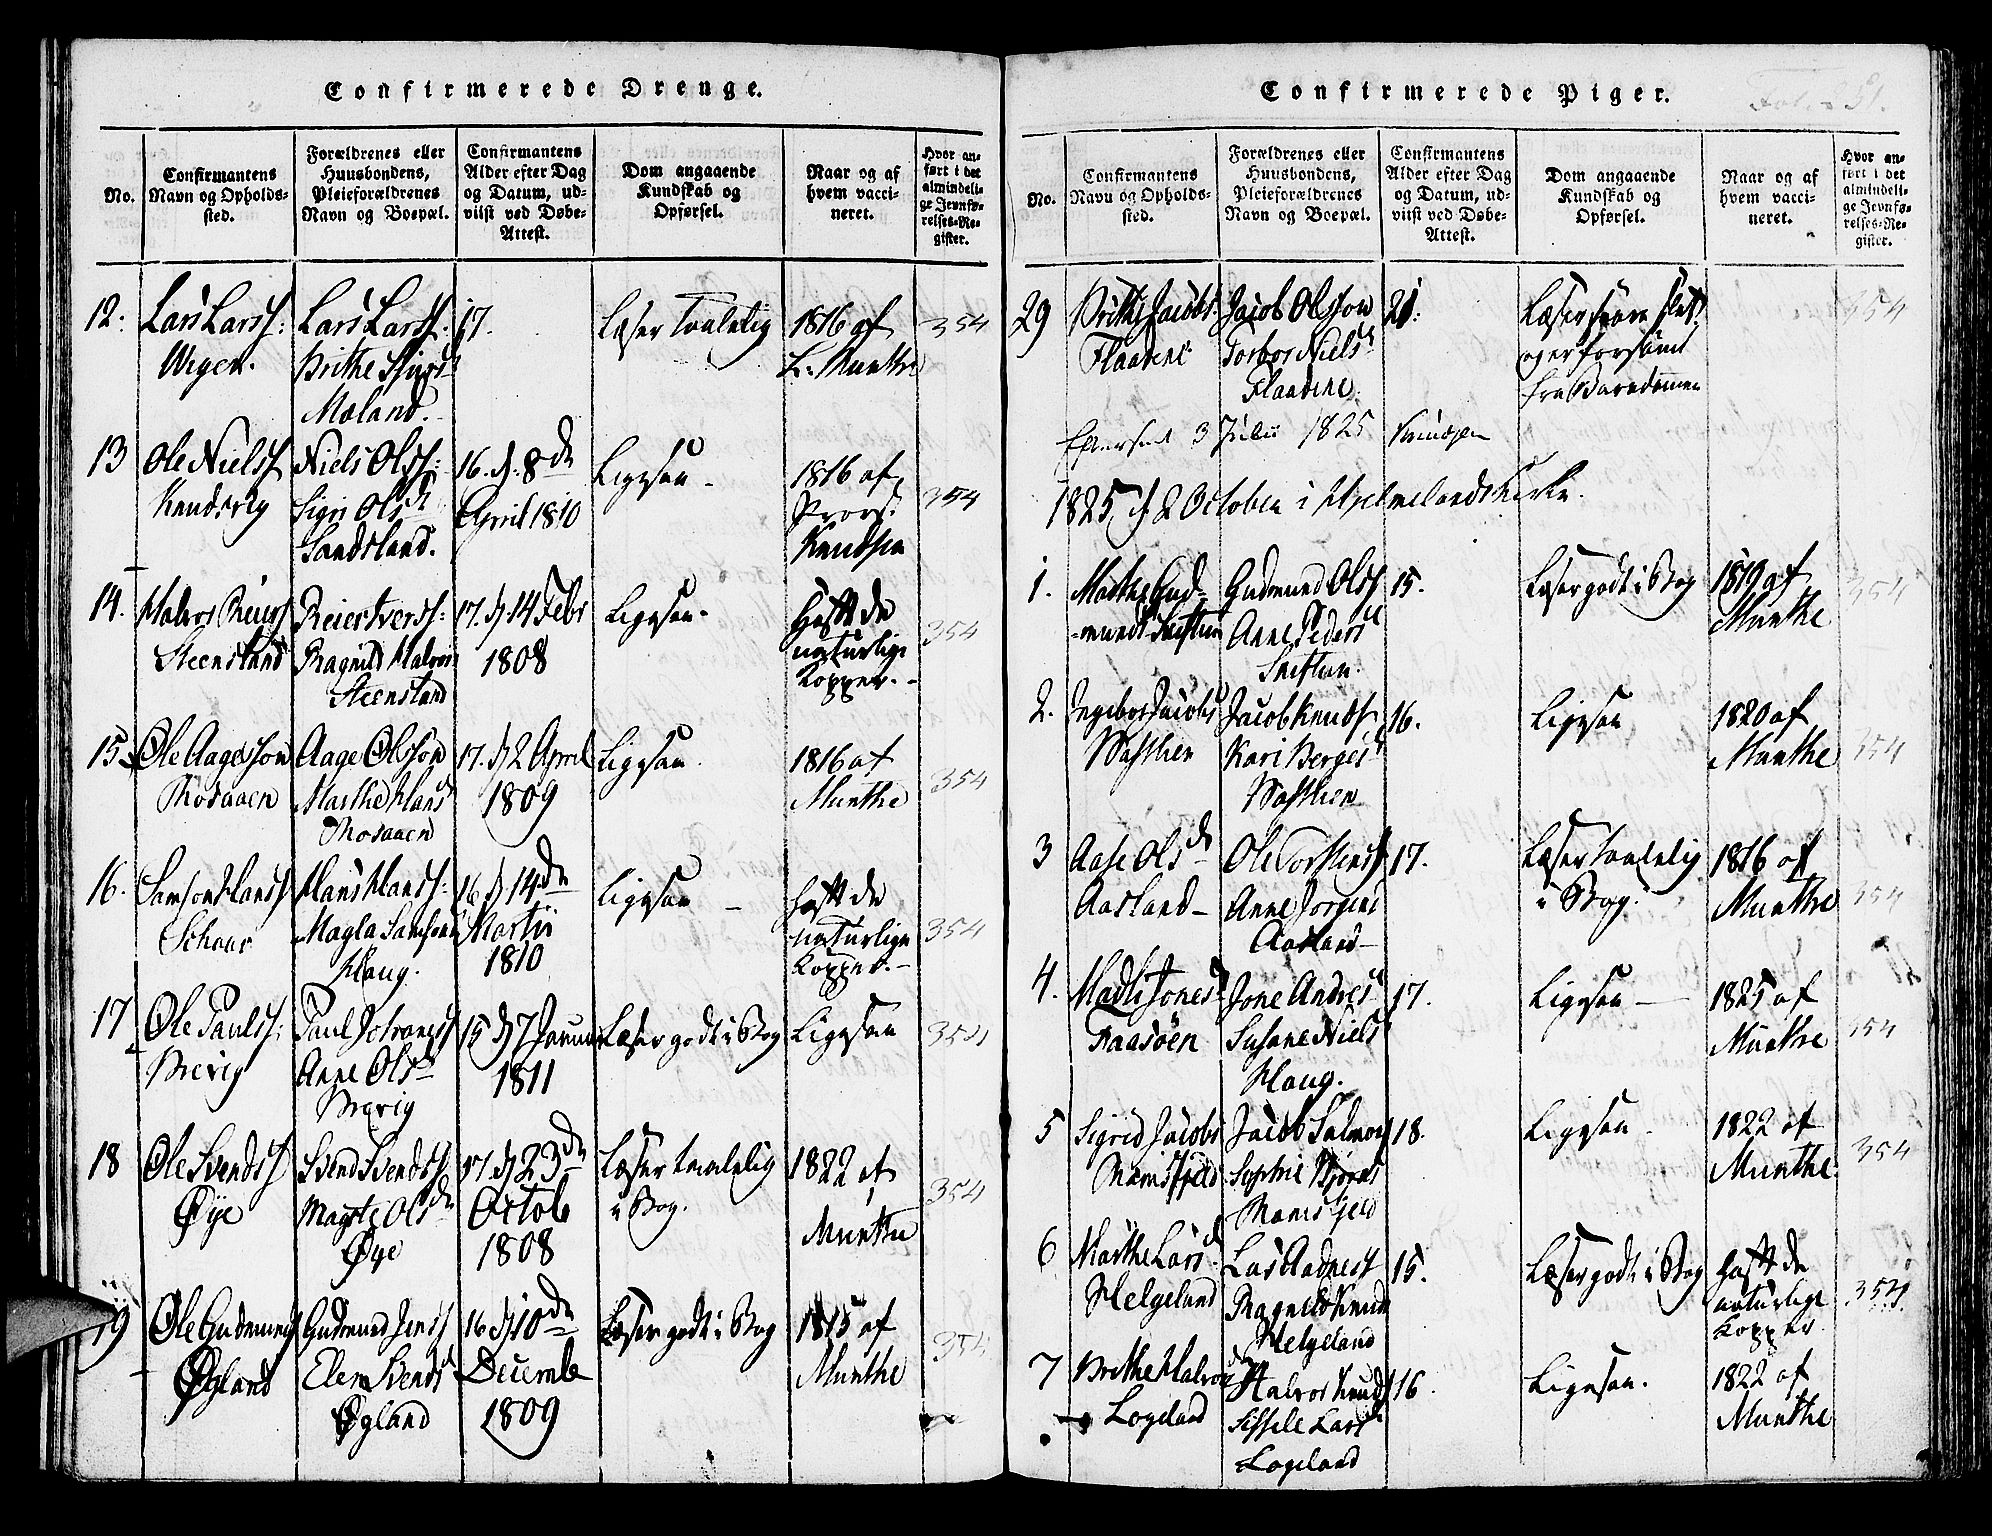 Confirmerede Drenge.
No.
Confirmantens
Navn og Opholds-
sted.
Forældrenes eller
Huusbondens,
Pleieforældrenes
Navn og Boepæl.
Confirmantens
Alder efter Dag
og Datum, ud-
viist ved Døbe-
Attest.
Dom angaaende
Kundskab og
Opførsel.
Naar og af
hvem vacci-
neret.
Hvor an-
ført i det
almindeli-
ge Jevnfø-
relses-Re-
gister.
12.
Lars Larss:
Lars Larss.
Brithe
Mæland.
17.
Læser taalelig
1816 af
L. Munthe
354
13
Ole Nielss
Knudsvig
Niels Olss:
Sigri Olsdr
Sandsland.
16. d. 8de
April 1810
Ligesaa
1816 af
Provst
Knudsen
354
14.
Halvor Reierss
Steensland
Reier Iverss:
Ragnild Halvors
Steensland
17. d 14 Febr
1808
Ligesaa.
Hafft de
naturlige
Kopper.
354
15.
Ole Aagesson
Mosaaen
Aage Olsson
Marthe Hansd
Mosaaen
17. d 2 April
1809
Ligesaa
1816 af
Munthe
354
16.
Samson Hanss
Schaar
Hans Hanss:
Magla Samsons
Haug.
16 d 14de
Martii
1810
Ligesaa
hafft de
naturlige
Kopper.
354
17
Ole Paulss:
Mævig
Paul Johaness
Anne Olsd
Mævig
15 d 7 Januar
1811
Læser godt i Bog
Ligesaa
354
18
Ole Svendss
Øye
Svend Svendss.
Magrete Olsdr
Øye
17 d 23de
Octob
1808
Læser taalelig
i Bog.
1822 af
Munthe
354
19
Ole Gudmunds
Øgland
Gudmund Jenss
Elen Svendsd
Øgland
16 d 10de
Decembr
1809
Læser godt i Bog
1815 af
Munthe
354
Confirmerede Piger.
Fol. 251.
No.
Confirmantens
Navn og Opholds-
sted.
Forældrenes eller
Huusbondens,
Pleieforældrenes
Navn og Boepæl.
Confirmantens
Alder efter Dag
og Datum, ud-
viist ved Døbe-
Attest.
Dom angaaende
Kundskab og
Opførsel.
Naar og af
hvem vacci-
neret.
Hvor an-
ført i det
almindeli-
ge Jevnfø-
relses-Re-
gister.
29
Brithe Jacobs.
Flaadene
Jacob Olsson
Torbor Nielsd
Flaadene
21.
Læser svare slet
og er forsømt
fra Barndommen
354
Efterseet 3 Julii 1825 Knudsen
1825 d 2 October i Hjelmelands Kirke.
1.
Marthe Gud-
munds
Gudmund Olss
Anne Pedersd
15.
Læser godt i Bog
1819 af
Munthe
354
2.
Ingebor Jacobsd
Vasthen
Jacob Knuds
Kari Bergesd
Vasthen
16.
Ligesaa
1820 af
Munthe
354
3
Aase Olsdr
Aasland
Ole Torstens
Anne Jorgens
Aasland
17.
Læser taalelig
i Bog.
1816 af
Munthe
354
4.
Madli Jonesd
Raasøen
Jone Andres
Susane Niels
Haug.
17.
Ligesaa
1825 af
Munthe
354
5
Sigrid Jacobs
Jacob Salmons
Sophie Bjørns
18.
Ligesaa
1822 af
Munthe
354
6
Marthe Larsd
Helgeland
Lars Aadness
Ragnild Knud
Helgeland
15.
Læser godt i Bog
hafft de
naturlige
Kopper
354
7
Brithe Halvors
Logeland
Halvor Knuds
Sissele Larsdr
Logeland
16.
Ligesaa.
1822 af
Munthe